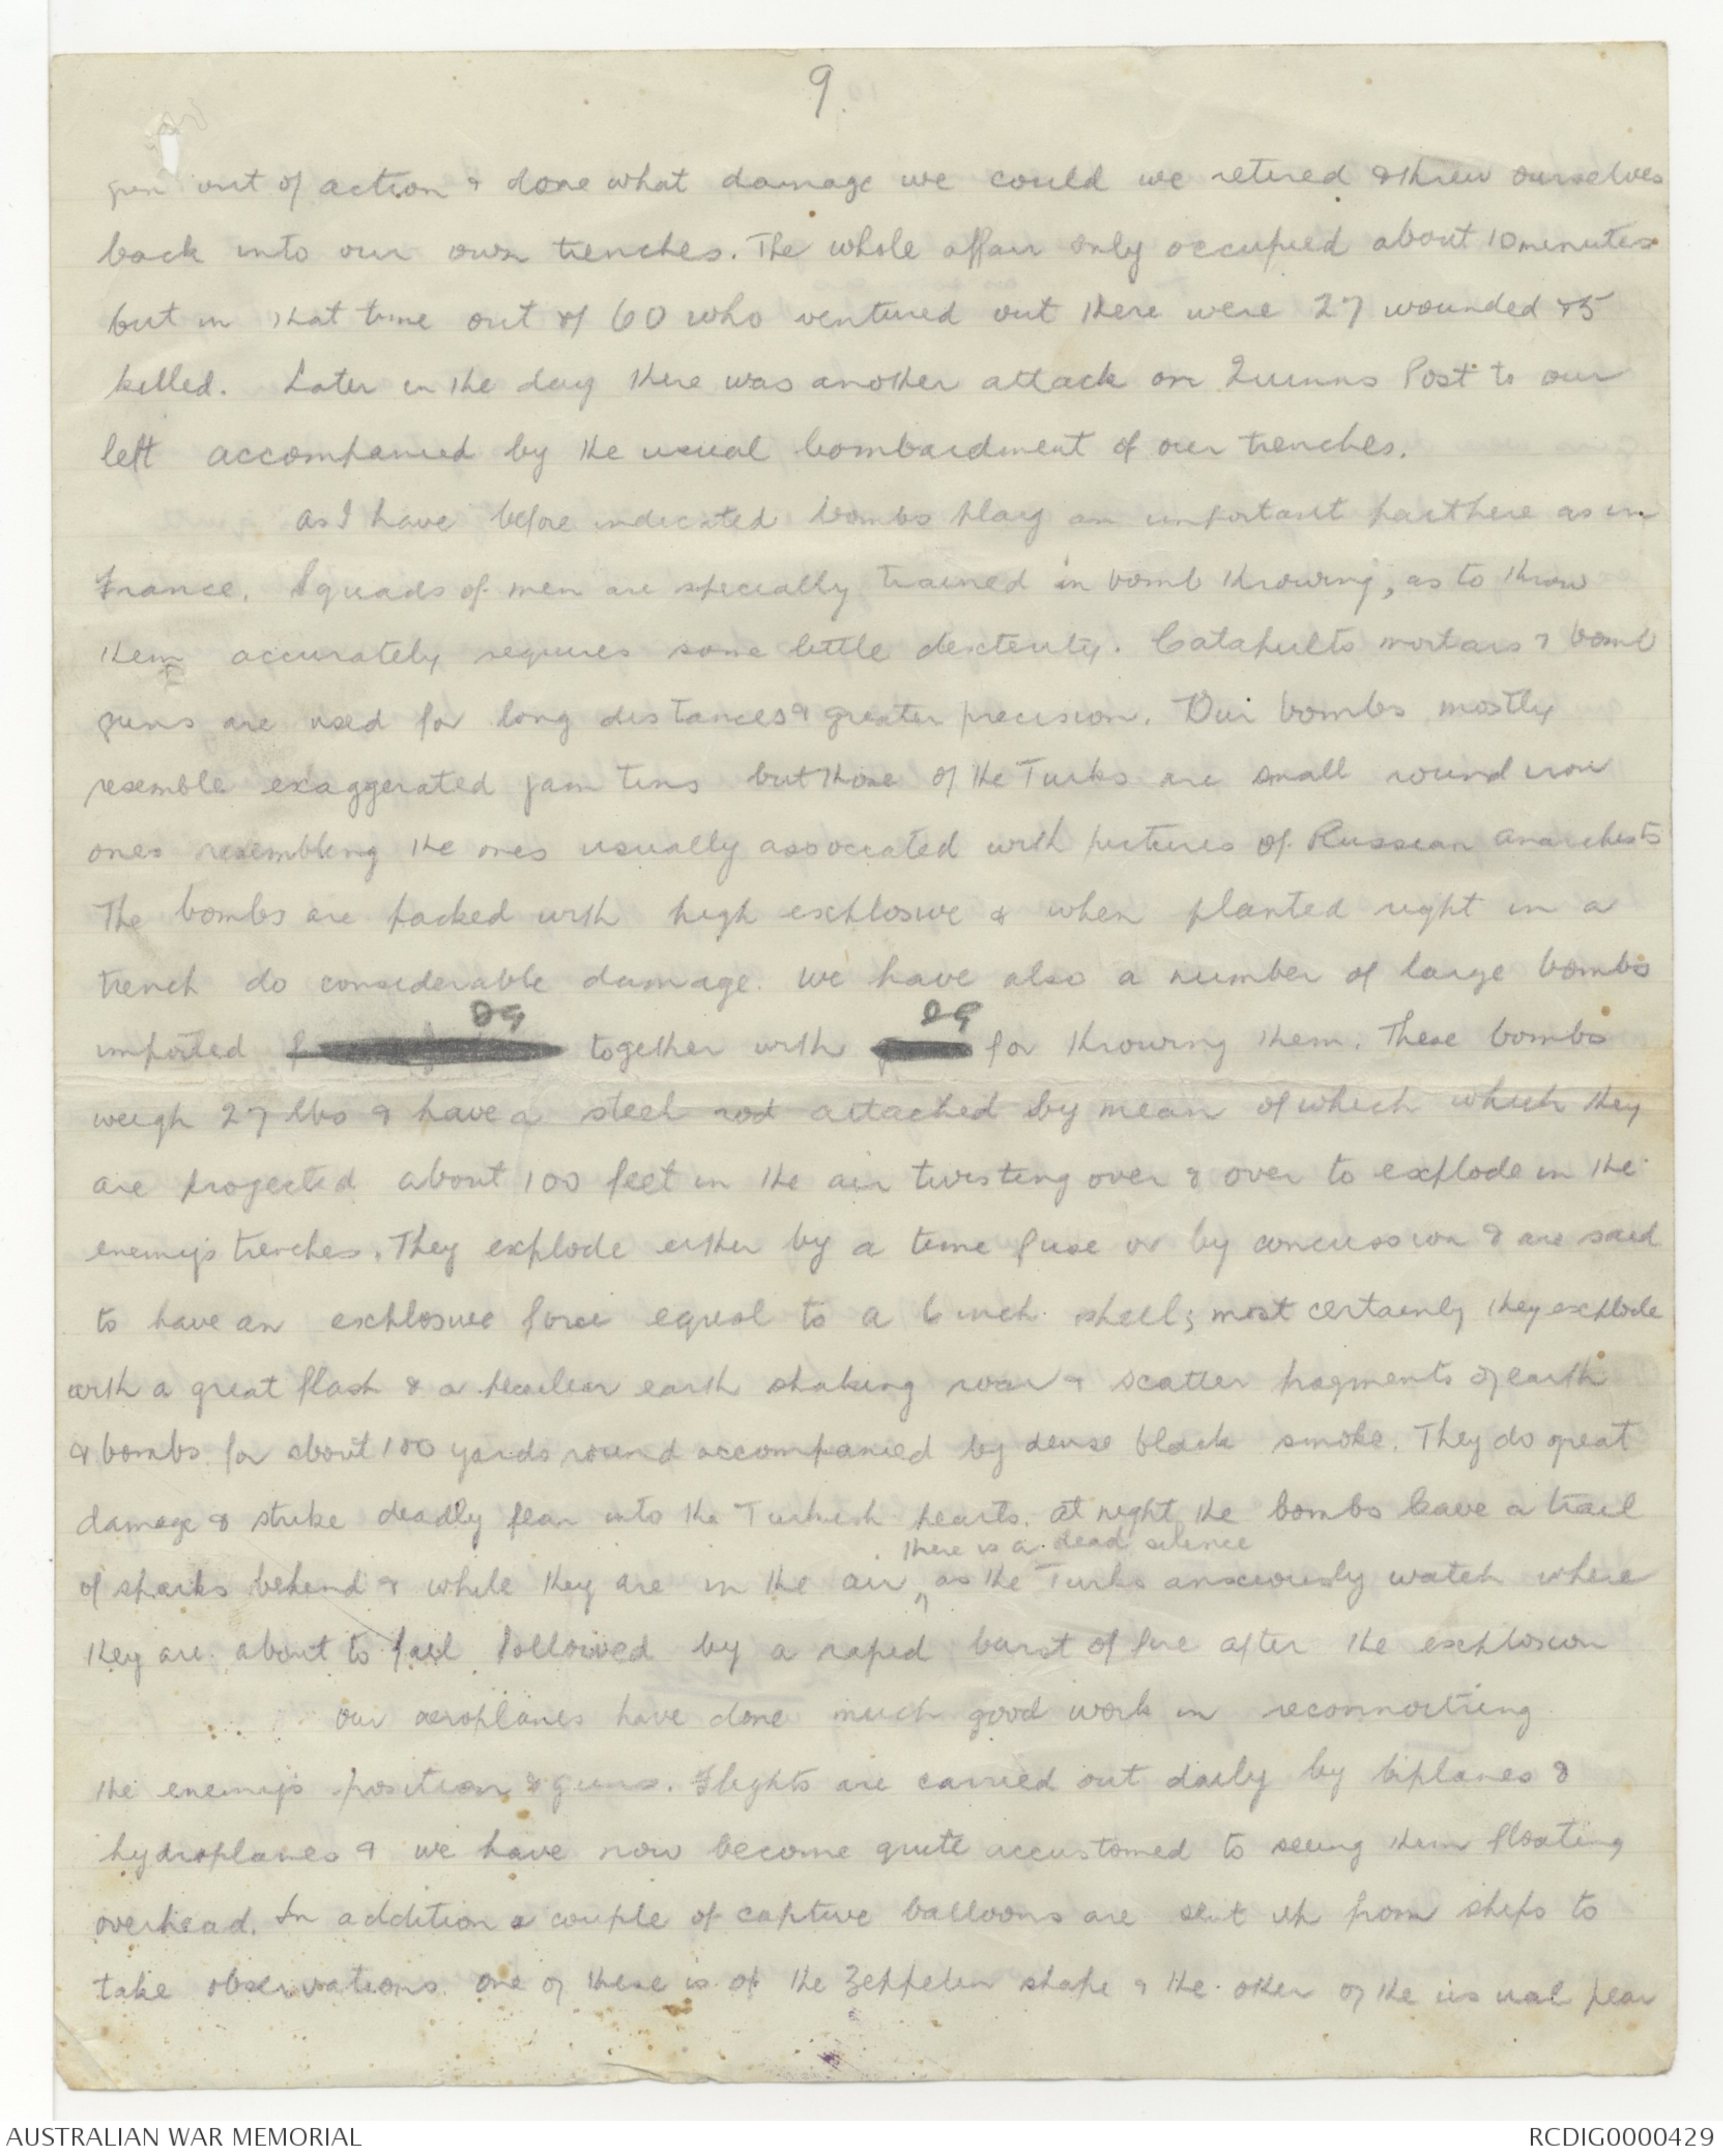 9.
gun out of action & done what damage we could we retired & threw ourselves
back into our own trenches. The whole affair only occupied about 10 minutes
but in that time out of 60 who ventured out there were 27 wounded & 5
killed. Later in the day there was another attack on Quinns Post to our
left accompanied by the usual bombardment of our trenches.
As I have before indicated bombs play an important part here as in
France. Squads of men are specially trained in bomb throwing, as to throw
them accurately requires some little dexterity. Catapults mortars & bomb
guns are used for long distances & greater precision. Our bombs mostly
resemble exaggerated jam tins but those of the Turks are small round iron
ones resembling the ones usually associated with pictures of Russian anarchists
The bombs are packed with high explosive & when planted right in a
trench do considerable damage. We have also a number of large bombs
imported together with for throwing them. These bombs
weigh 27 lbs & have a steel rod attached by mean of which which they
are projected about 100 feet in the air twisting over & over to explode in the
enemy's trenches. They explode either by a time fuse or by concussion & are said
to have an explosive force equal to a 6 inch shell; most certainly they explode
with a great flash & a peculiar earth shaking roar & scatter fragments of earth
& bombs for about 100 yards round accompanied by dense black smoke. They do great
damage & strike deadly fear into the Turkish hearts. At night the bombs leave a trail
there is a dead silence
of sparks behind & while they are in the air as the Turks anxiously watch where
they are about to fall followed by a rapid burst of fire after the explosion
Our aeroplanes have done much good work in reconnoitring
the enemy's position & guns. Flights are carried out daily by biplanes &
hydroplanes & we have now become quite accustomed to seeing them floating
overhead. In addition a couple of captive balloons are sent up from ships to
take observations. One of these is of the Zeppelin shape & the other of the usual pear
AUSTRALIAN WAR MEMORIAL
RCDIG0000429